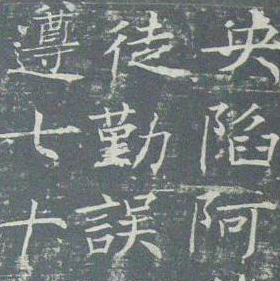 央陷阿
徒勤誤
遵七十